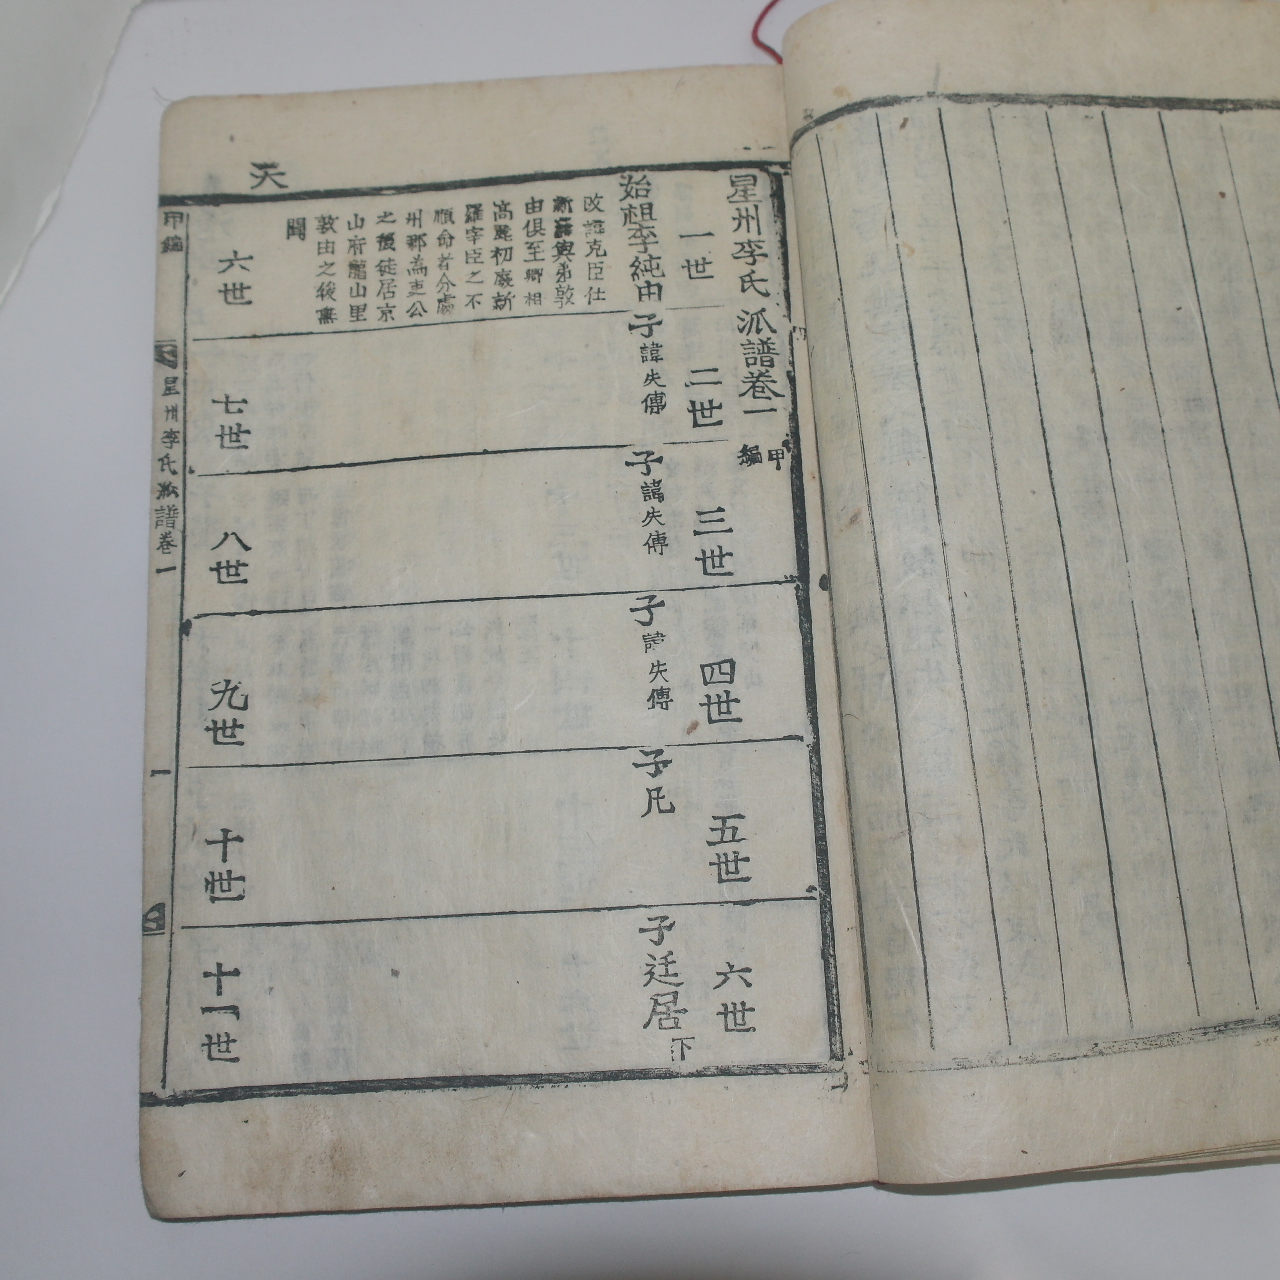 天
星州李氏派譜卷一 甲編
一世
二世
三世
四世
五世
六世
始祖李純由
改諱克臣仕
新羅與弟敦
由俱至卿相
高麗初廢新
羅宰臣之不
順命者分處
州郡爲吏公
之後徙居京
山府龍山里
敦由之後無
聞
子諱失傳
子諱失傳
子諱失傳
子凡
子廷居下
六世
七世
八世
九世
十世
十一世
甲編
星州李氏派譜卷一
一